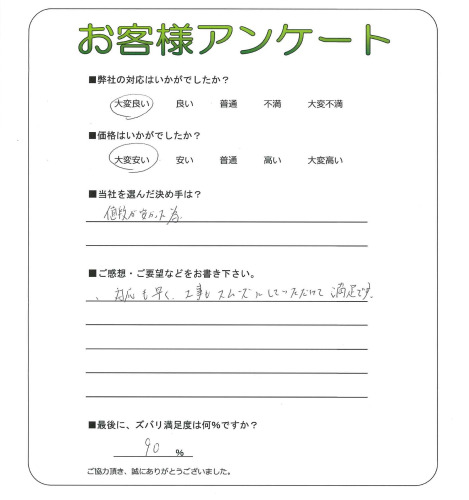 お客様アンケート
■弊社の対応はいかがでしたか？
大変良い 良い 普通 不満 大変不満
■価格はいかがでしたか？
大変安い 安い 普通 高い 大変高い
■当社を選んだ決め手は？
価格が安かった為
■ご感想・ご要望などをお書き下さい。
、対応も早く、工事もスムーズにしていただけて満足です。
■最後に、ズバリ満足度は何％ですか？
90 ％
ご協力頂き、誠にありがとうございました。